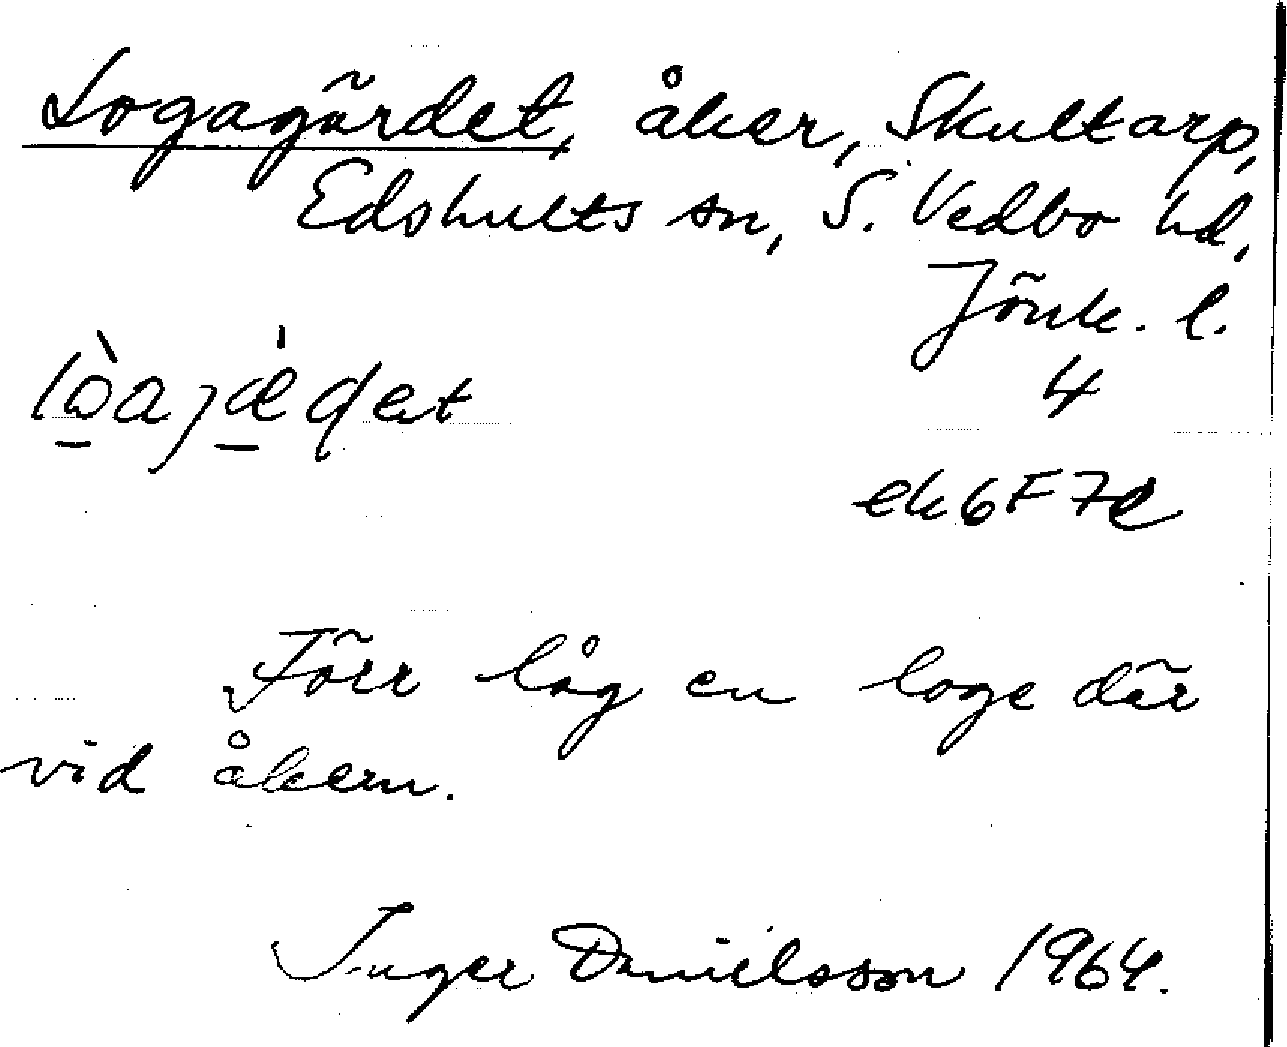 Logagärdet, åker, Skultarp,
Edshults sn, S. Vedbo hd,
Jönk. l.
4
ek 6F7e
Förr låg en loge där
vid åkern.
Inger Danielsson 1964.